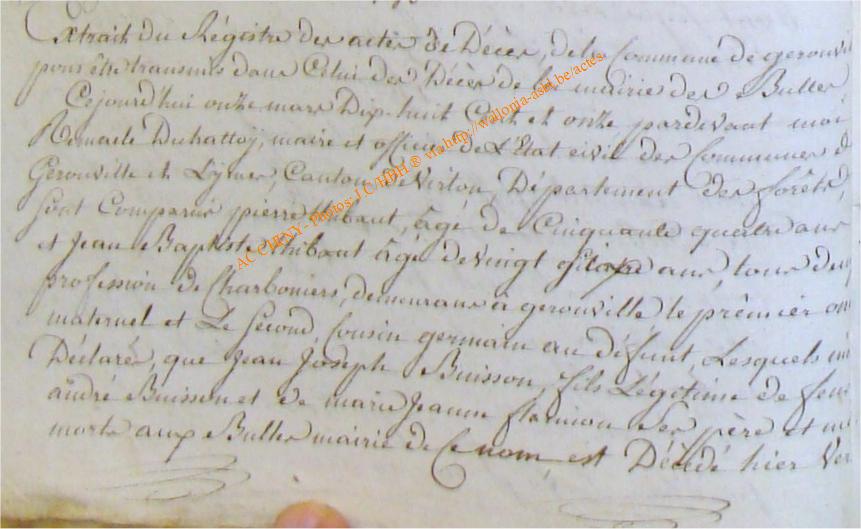 Extrait du Régistre des actes de Décès, de la Commune de gerouvil
pour être transmis dans Celui des Décès de la mairie des Bulles
Cejourd'hui onze mars Dix-huit Cent et onze pardevant moi
Remacle Duhattoÿ, maire et officier de L'Etat civil des Communes d
Gerouville et Limes, Canton de Virton, Département des forêts,
Sont Comparus pierre thibaut, âgé de Cinquante quatre ans
et Jean Baptiste thibaut âgé de vingt ans, tous deux
profession de Charboniers, demeurans à gerouville, le prêmier on
maternel et Le Second, Cousin germain au défunt, Lesquels m
Déclaré, que Jean Joseph Buisson, fils Légitime de feu
andré Buisson et de marie Jeanne Ses père et m
morts aux Bulles mairie de Ce nom, est Décédé hier Ver
ACCHRNY- Photos J.C/HBH ® via http://wallonia-asbl.be/actes